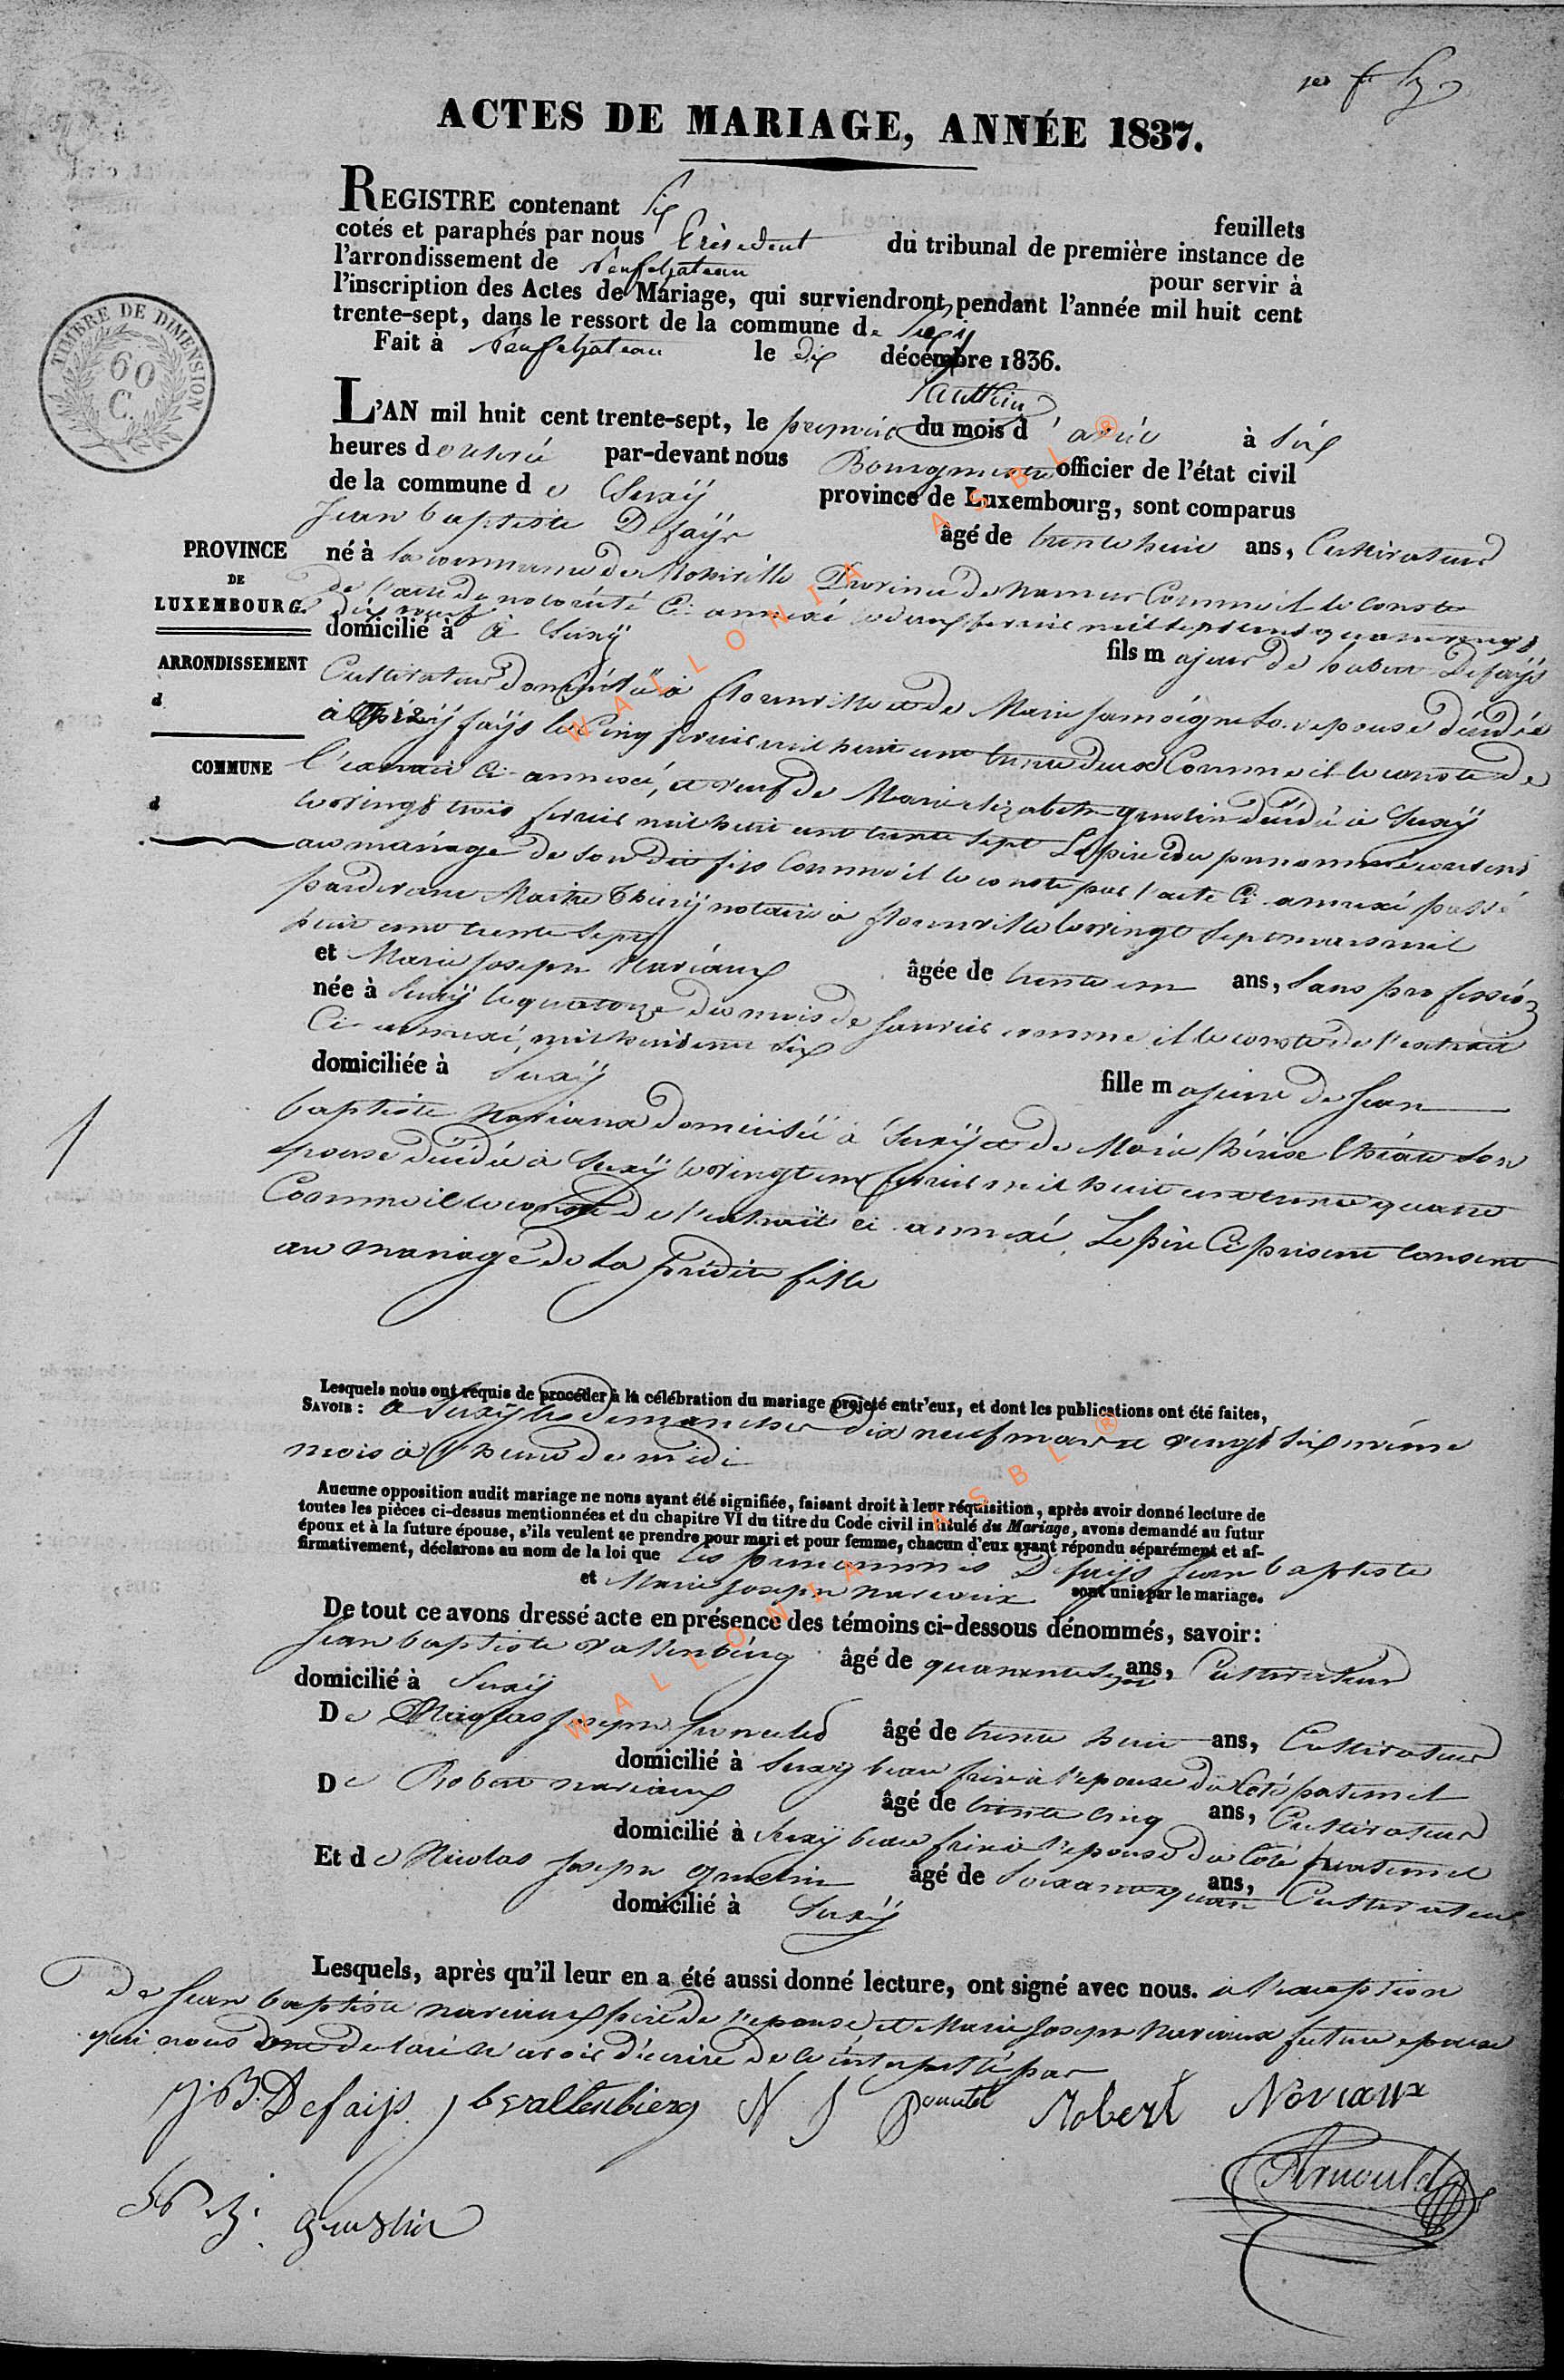 ACTES DE MARIAGE, ANNÉE 1837.
REGISTRE contenant six feuillets
cotés et paraphés par nous Président du tribunal de première instance de
l'arrondissement de Neufchateau pour servir à
l'inscription des Actes de Mariage, qui surviendront pendant l'année mil huit cent
trente-sept, dans le ressort de la commune de Suxy
Fait à Neufchateau le dix décembre 1836.
TIMBRE DE DIMENSION
60
C.
L'AN mil huit cent trente-sept, le premier du mois d'avril à six
heures du soir par-devant nous Bourgmestre officier de l'état civil
de la commune de Suxÿ province de Luxembourg, sont comparus
Jean baptiste Defaÿs âgé de trente huit ans, Cultivateur
PROVINCE
DE
LUXEMBOURG.
ARRONDISSEMENT
d
COMMUNE
d
né à la commune de Mohiville Province de namur Comme il le conste
de l'acte de notoriété Ci annexé le deux fevrier mil sept cent quatre vingt
dix neuf
domicilié à à Suxÿ fils majeur de hubert Defaÿs
Cultivateur domicilié à florenville et de Marie jamoigne son epouse décédée
à faÿs le Cinq fevrier mil huit cent trente deux Comme il le conste de
l'extrait Ci-annexé, et veuf de Marie elizabeth gustin décédée à Suxÿ
le vingt trois fevrier mil huit cent trente sept Le père du prenommé consent
au mariage de son dit fils Comme il le conste par l'acte Ci-annexé passé
pardevant Maitre thirÿ notaire à florenville le vingt sept mars mil
huit cent trente sept
et Marie Joseph Noviaux âgée de trente un ans, Sans profession
née à Suxÿ le quatorze du mois de Janvier comme il le conste de l'extrait
Ci-annexé, mil huit cent six
domiciliée à Suxÿ fille majeure de Jean
baptiste Noviaux domicilié à Suxÿ et de Marie thérèse théate son
epouse décédée à Suxÿ le vingt un fevrier mil huit cent trente quatre
Comme il le conste de l'extrait ci annexé. Le père Ci présent consent
au mariage de sa prédite fille
Lesquels nous ont requis de procéder à la célébration du mariage projeté entr'eux, et dont les publications ont été faites,
SAVOIR: à Suxÿ les dimanches dix neuf mars et vingt six même
mois à l'heure de midi
Aucune opposition audit mariage ne nous ayant été signifiée, faisant droit à leur réquisition, après avoir donné lecture de
toutes les pièces ci-dessus mentionnées et du chapitre VI du titre du Code civil intitulé du Mariage, avons demandé au futur
époux et à la future épouse, s'ils veulent se prendre pour mari et pour femme, chacun d'eux ayant répondu séparément et af-
firmativement, déclarons au nom de la loi que les prenommés Defaÿs Jean baptiste
et Marie Joseph Noviaux sont unis par le mariage.
De tout ce avons dressé acte en présence des témoins ci-dessous dénommés, savoir:
Jean baptiste Valtenbierg âgé de quarante ans, Cultivateur
domicilié à Suxÿ
De Nicolas Joseph âgé de trente huit ans, Cultivateur
domicilié à Suxÿ beau frère à l'epouse du Coté paternel
De Robert noviaux âgé de trente cinq ans, Cultivateur
domicilié à Suxÿ beau frère à l'epouse du Coté paternel
Et de Nicolas Joseph gustin âgé de soixante quatre ans, Cultivateur
domicilié à Suxÿ
Lesquels, après qu'il leur en a été aussi donné lecture, ont signé avec nous. à l'exception
De Jean baptiste noviaux père de l'epouse et Marie Joseph Noviaux future epouse
qui nous ont declaré ne savoir d'écrire de ce interpellé par
J. B. Defaijs J b valtenbierg N J Robert Noviaux
N. J. gustin
Arnould
WALLONIA ASBL ®
WALLONIA ASBL ®